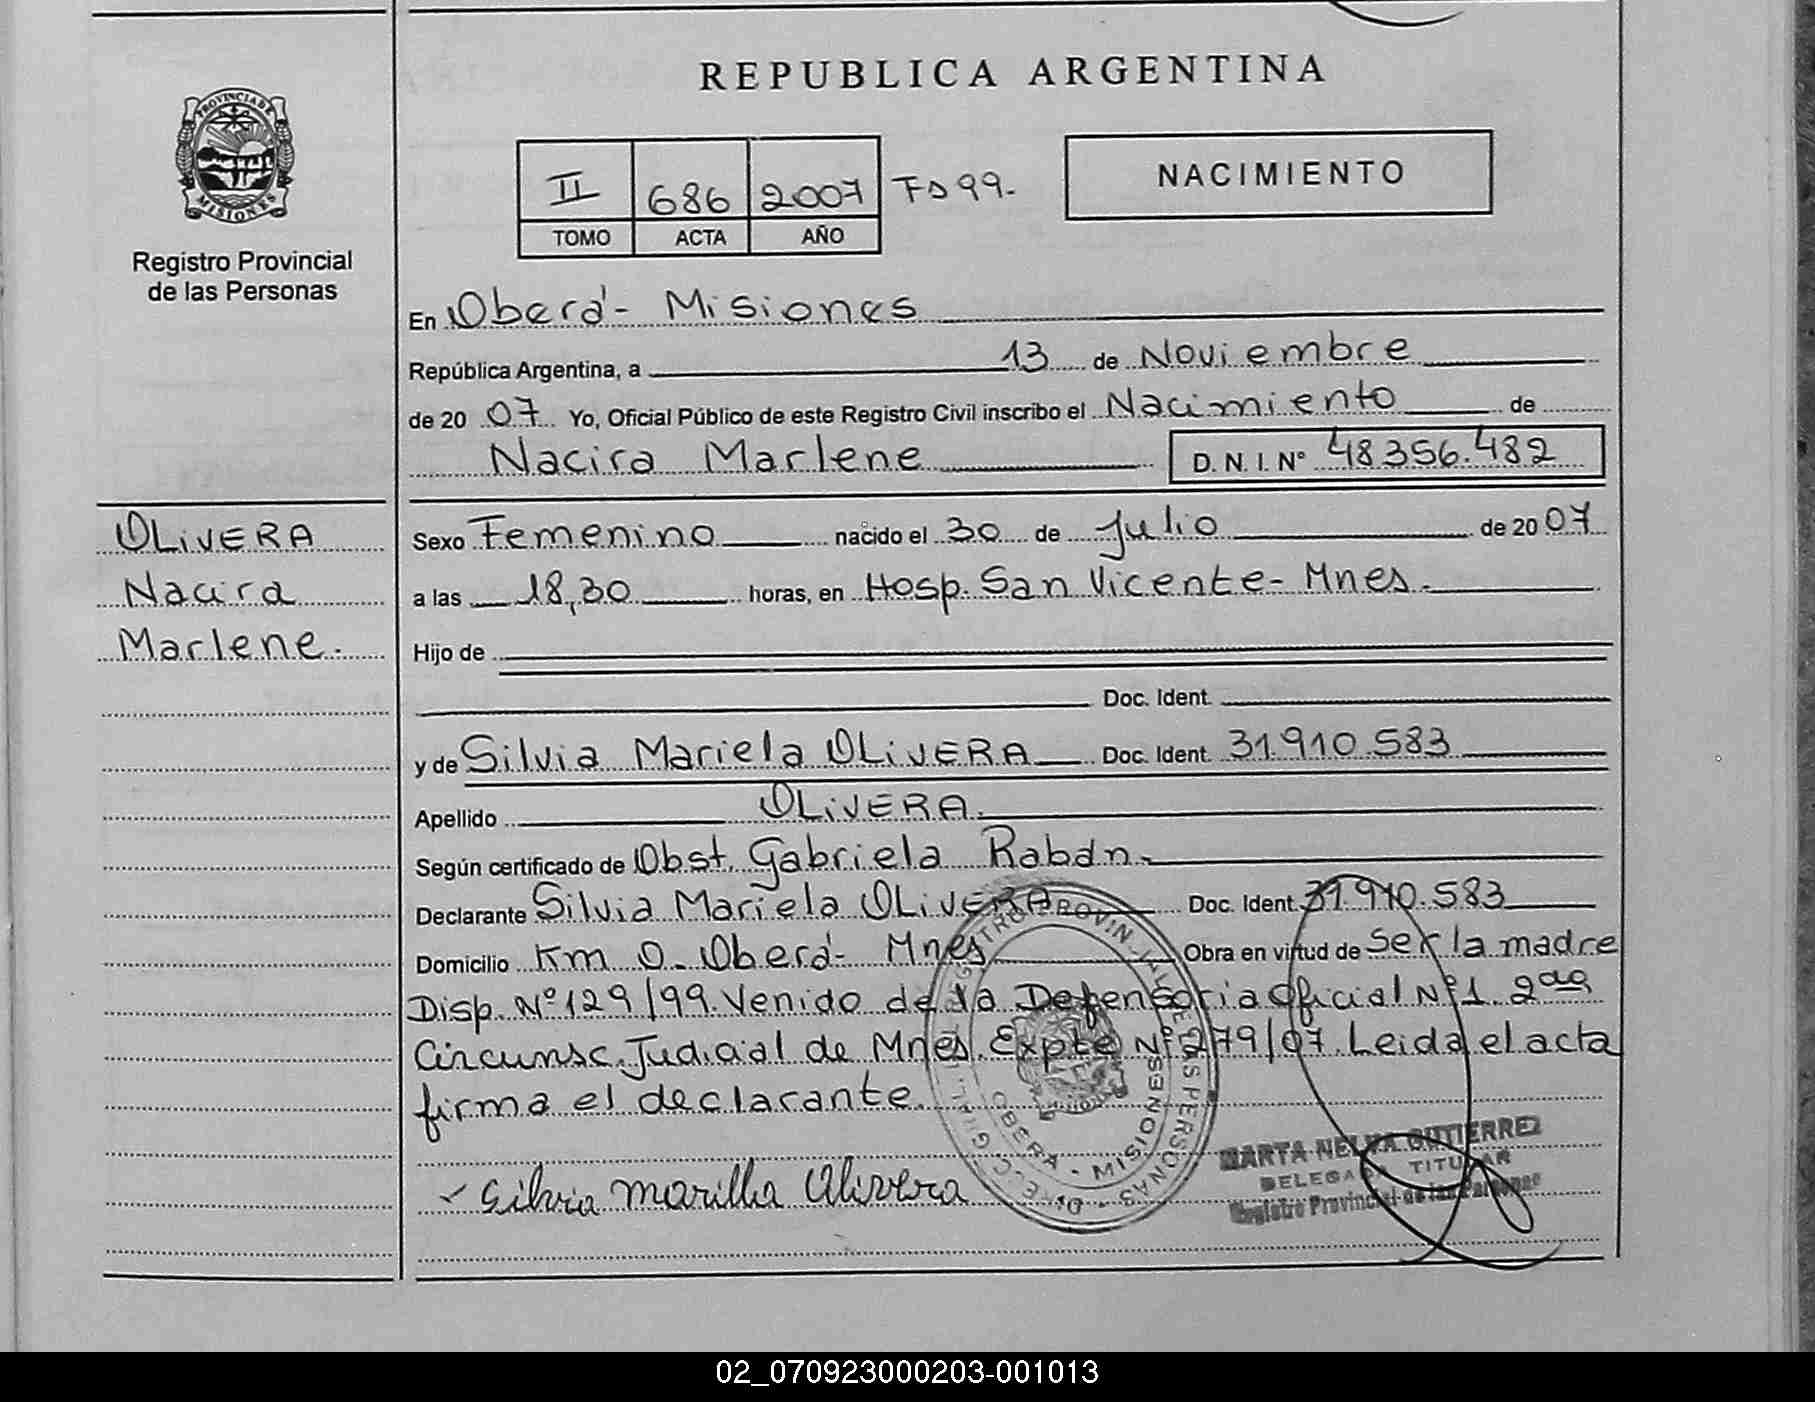 REPUBLICA ARGENTINA
PROVINCIA DE
MISIONES
Registro Provincial
de las Personas
II 686 2007 Fº 99-
TOMO ACTA AÑO
NACIMIENTO
En Oberá- Misiones
República Argentina, a 13 de Noviembre
de 20 07 Yo, Oficial Público de este Registro Civil inscribo el Nacimiento de
Nacira Marlene D. N. I. Nº 48.356.482
OLiVERA
Nacira
Marlene.-
Sexo Femenino nacido el 30 de Julio de 20 07
a las 18,30 horas, en Hosp. San Vicente- Mnes.
Hijo de
Doc. Ident.
y de Silvia Mariela OLiVERA Doc. Ident. 31.910.583
Apellido OLiVERA.
Según certificado de Obst. Gabriela Raban.
Declarante Silvia Mariela OLiVERA Doc. Ident. 31.910.583
Domicilio Km 0- Oberá- Mnes Obra en virtud de Ser la madre
Disp. Nº 129/99. Venido de la Defensoria Oficial Nº 1. 2da
Circunsc. Judicial de Mnes. Expte Nº 279/07. Leida el acta
firma el declarante.
Silvia marilla Olivera
OBERA - MISIONES
MARTA NELVA GUTIERREZ
DELEGADA TITULAR
Registro Provincial de las Personas
02_070923000203-001013